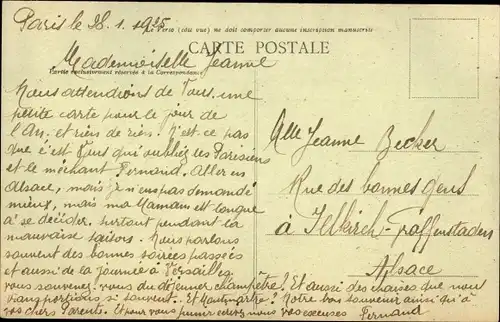 Paris le 28.1.1925
Le Verso (côté vue) ne doit comporter aucune inscription manuscrite
CARTE POSTALE
Mademoiselle Jeanne
Partie exclusivement réservée à la Correspondance
Nous attendions de Vous une
petite carte pour le jour de
l'An, et rien de rien. N'est ce pas
que c'est Vous qui oubliez les Parisiens
et le méchant Fernand. Aller en
Alsace, mais je n'en pas demandé
mieux, mais ma Maman est longue
à se décider, surtout pendant la
mauvaise saison. Nous parlons
souvent des bonnes soirées passées
et aussi de la journée à Versailles
vous souvenez-vous du déjeuner champêtre? Et aussi des chaises que nous
transportions si souvent. Et Montmartre? Notre bon souvenir ainsi qu'à
vos chers Parents. Et pour vous punir écrivez nous vos excuses Fernand
Mlle Jeanne Becker
Rue des bonnes gens
à Illkirch-Graffenstaden
Alsace